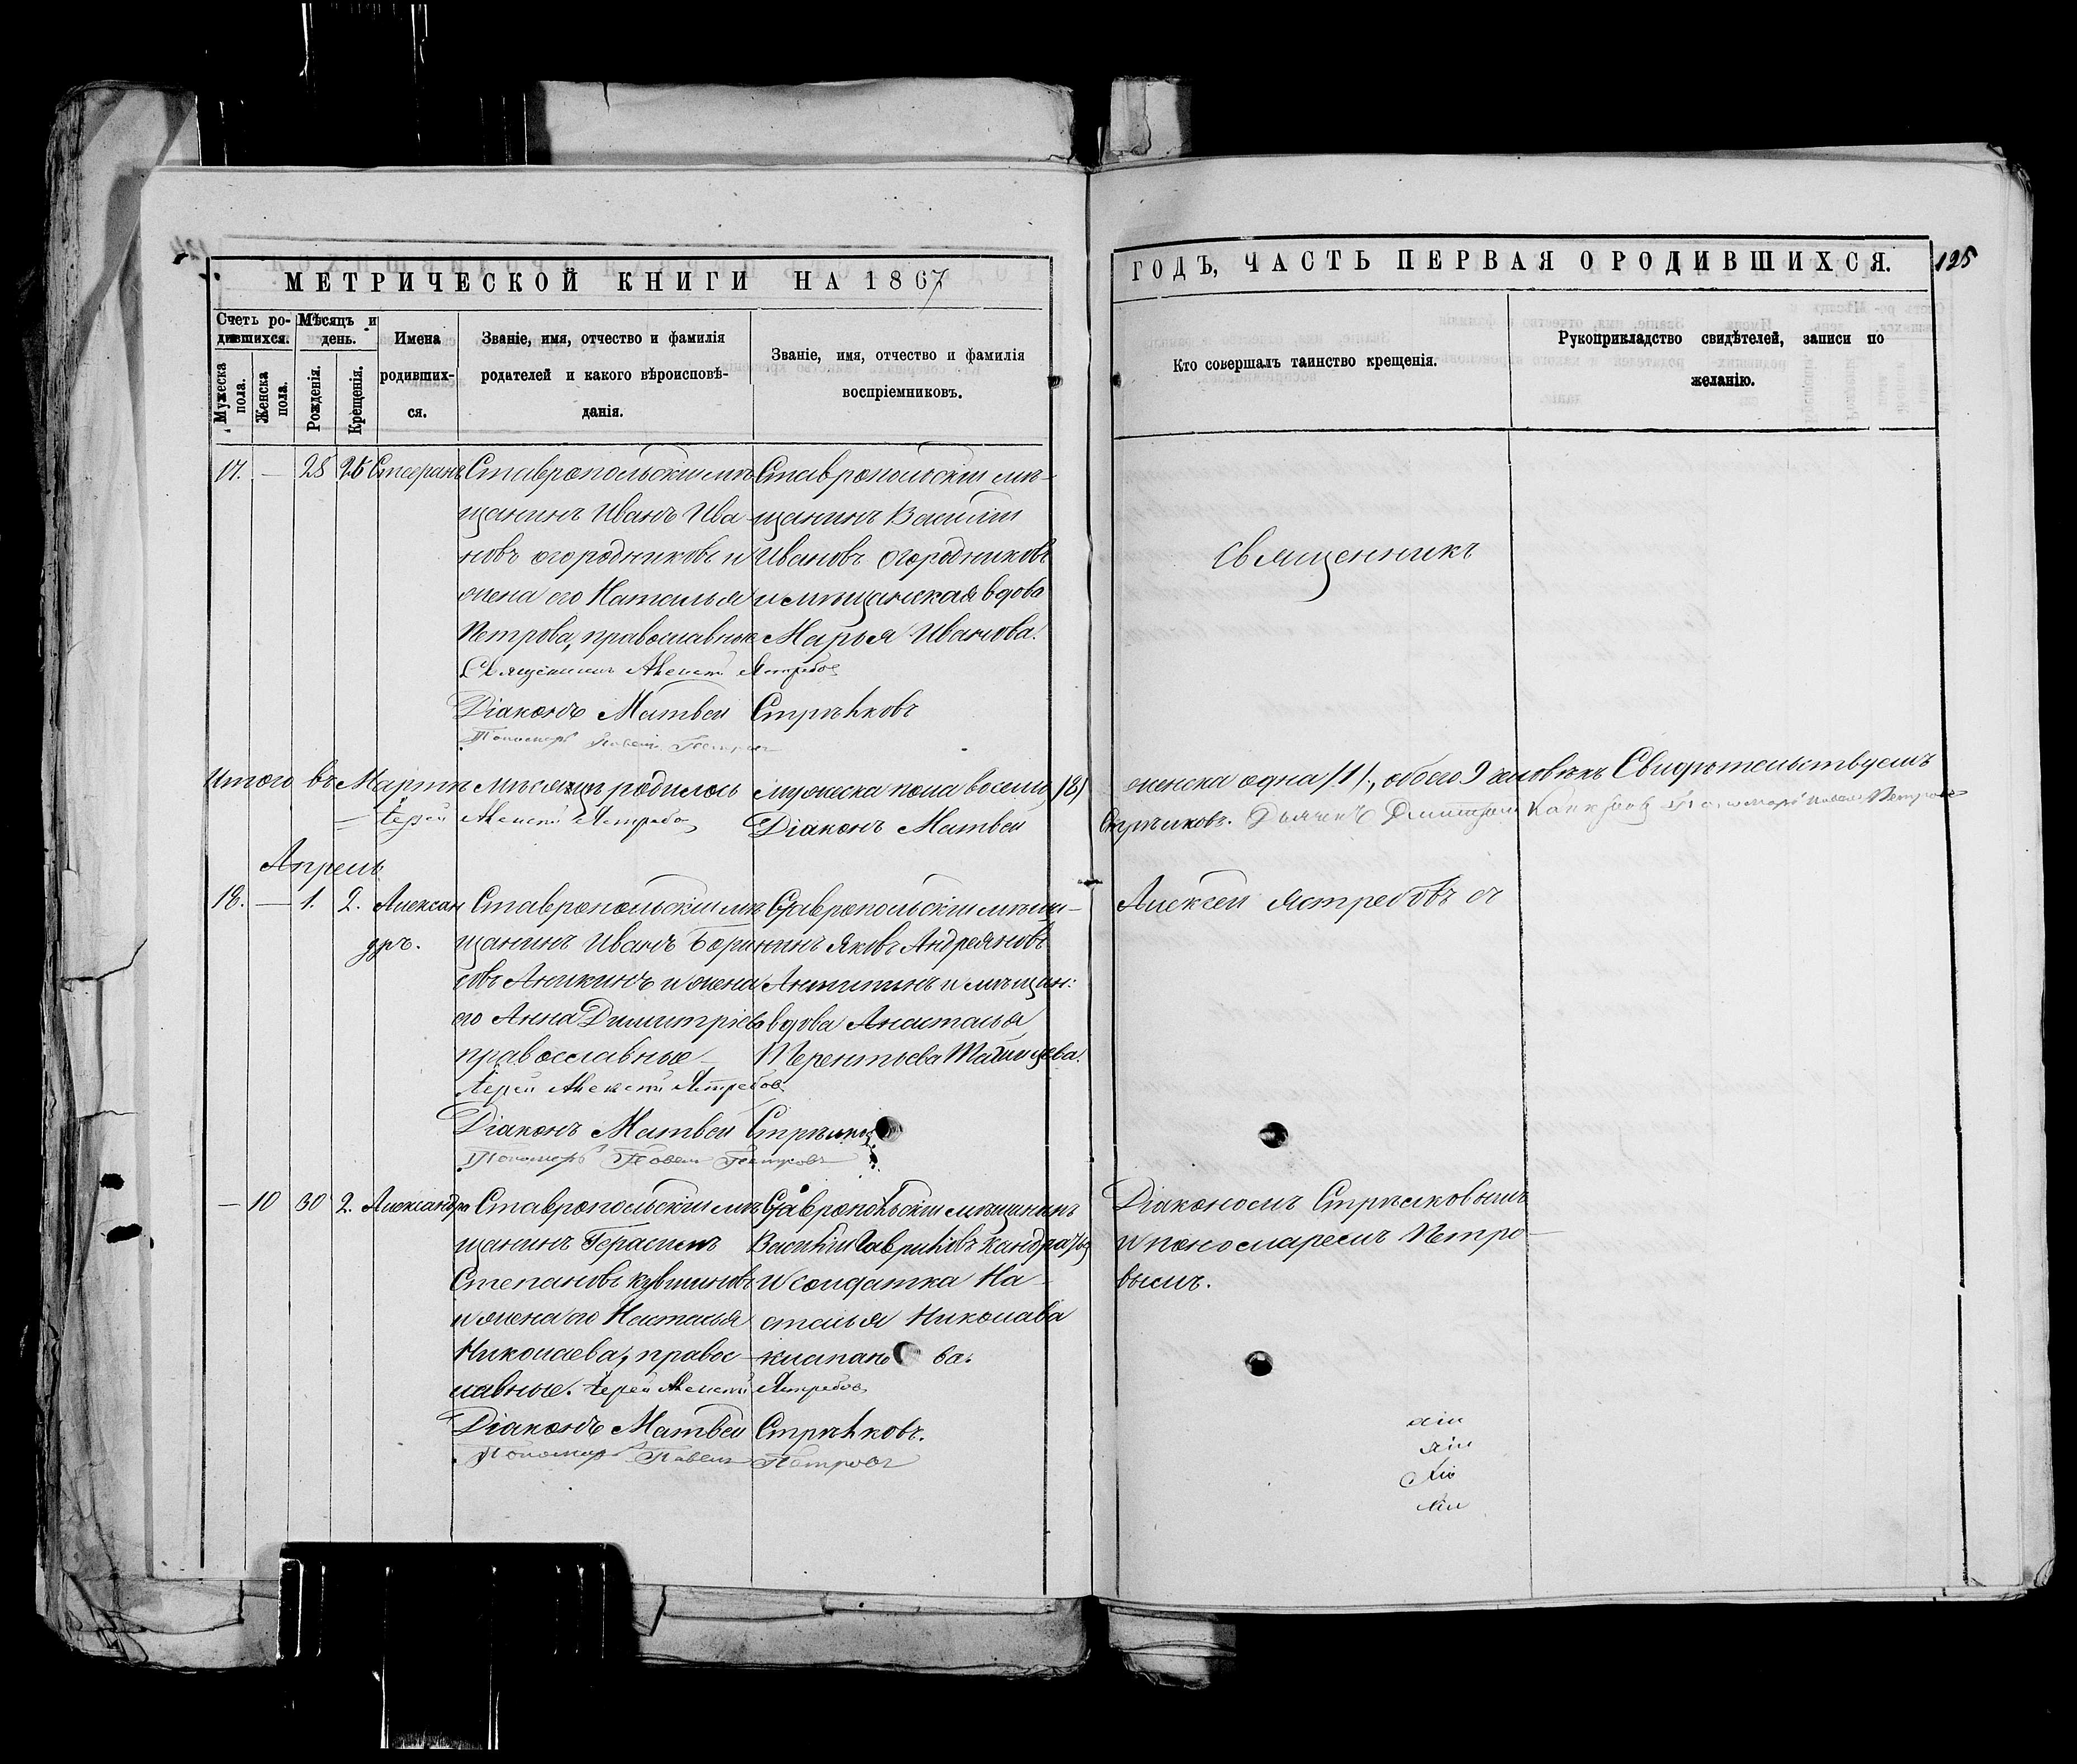 МЕТРИЧЕСКОЙ КНИГИ НА 1867
ГОДЪ, ЧАСТЬ ПЕРВАЯ О РОДИВШИХСЯ.
125
Счетъ ро-
дившихся.
Мѣсяцъ и
день.
Мужеска
пола.
Женска
пола.
Рожденія.
Крещенія.
Имена
родивших-
ся.
Званіе, имя, отчество и фамилія
родителей и какого вѣроисповѣ-
данія.
Званіе, имя, отчество и фамилія
воспріемниковъ.
Кто совершалъ таинство крещенія.
Рукоприкладство свидѣтелей, записи по
желанію.
17. — 25 26 Стефанъ
Ставропольскій мѣ
щанинъ Иванъ Ива
новъ Огородниковъ и
жена его Наталья
Петрова, православные
Ставропольскій мѣ-
щанинъ Василій
Ивановъ Огородниковъ
и мѣщанская вдова
Марья Иванова.
Священникъ Алексѣй Ястребовъ
Діаконъ Матвей Стрѣлковъ
Пономарь Павелъ Петровъ
Священникъ
Итого въ Мартѣ мѣсяцѣ родилось мужеска пола восемь /8/
женска одна /1/, обоего 9 человѣкъ Свидѣтельствуемъ
Іерей Алексѣй Ястребовъ Діаконъ Матвей
Стрѣлковъ. Дьячекъ Димитрій Пономарь Павелъ Петровъ
Апрель
18. — 1. 2. Алексан
дръ.
Ставропольскій мѣ
щанинъ Иванъ Бори
совъ Аникинъ и жена
его Анна Димитріева
православные
Ставропольскій мѣща-
нинъ Яковъ Андреяновъ
Аникинъ и мѣщан:
вдова Анастасья
Терентьева
Іерей Алексѣй Ястребовъ
Діаконъ Матвей Стрѣлковъ
Пономарь Павелъ Петровъ
Алексѣй Ястребовъ съ
— 10 30 2. Александра
Ставропольскій мѣ
щанинъ Герасимъ
Степановъ Кувшиновъ
и жена его Наталья
Николаева, правос-
лавные.
Ставропольскій мѣщанинъ
Василій Гавриловъ
и солдатка На-
талья Николава
Іерей Алексѣй Ястребовъ
Діаконъ Матвей Стрѣлковъ.
Пономарь Павелъ Петровъ
Діакономъ Стрѣлковымъ
и пономаремъ Петро-
вымъ.